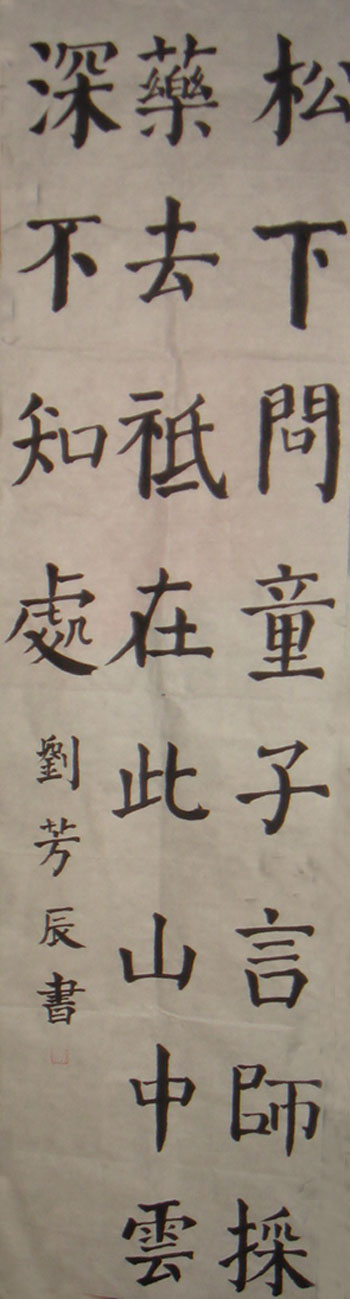 松下問童子言師採
藥去祗在此山中雲
深不知處
劉芳辰書